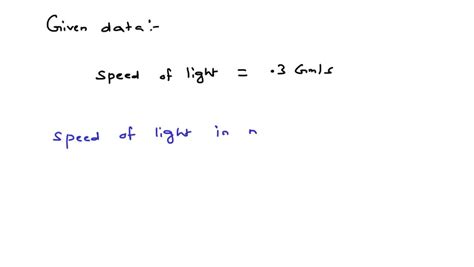 Given data:-
speed of light = .3 Gm/s
speed of light in n